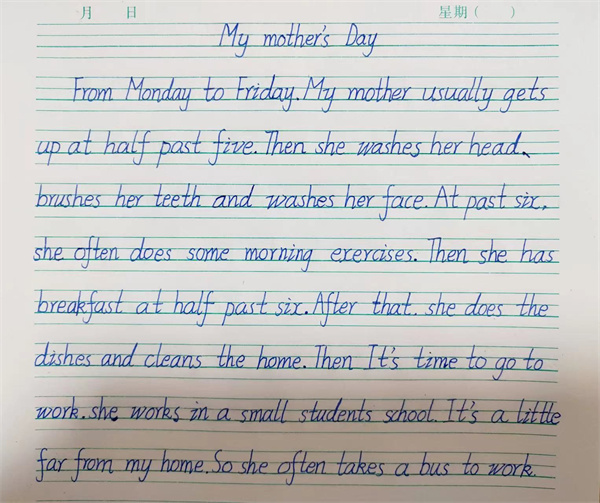 月 日 星期( )
My mother's Day
From Monday to Friday. My mother usually gets
up at half past five. Then she washes her head、
brushes her teeth and washes her face. At past six,
she often does some morning exercises. Then she has
breakfast at half past six. After that. she does the
dishes and cleans the home. Then It's time to go to
work. she works in a small students school. It's a little
far from my home. So she often takes a bus to work.